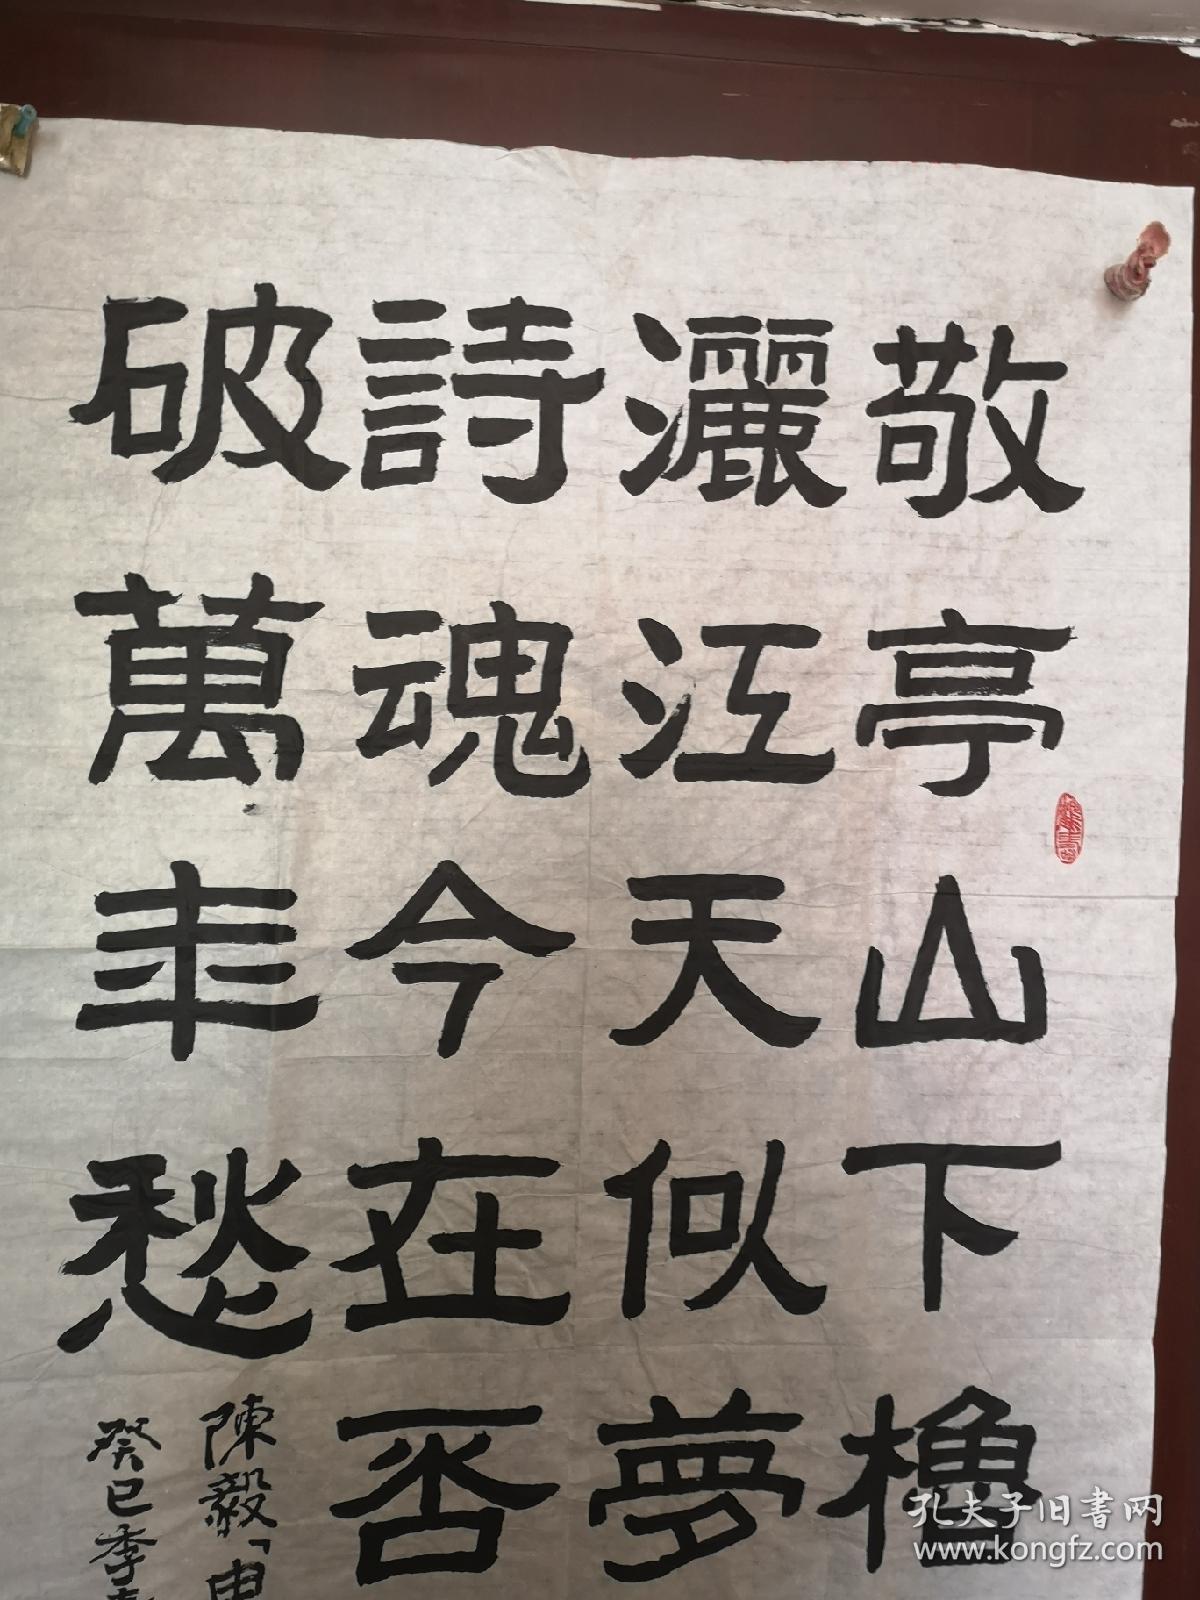 敬亭山下櫓
灑江天似夢
詩魂今在否
破萬年愁
陳毅「由
癸巳季春
孔夫子旧书网
www.kongfz.com